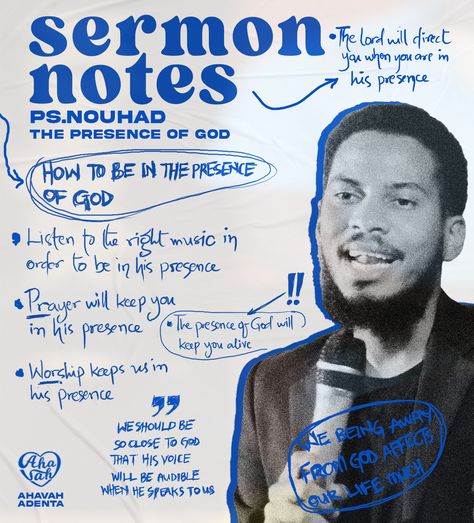 sermon
notes
PS.NOUHAD
THE PRESENCE OF GOD
• The Lord will direct
you when you are in
his presence
HOW TO BE IN THE PRESENCE
OF GOD
• Listen to the right music in
order to be in his presence
• Prayer will keep you
in his presence
!!
• The presence of God will
keep you alive
• Worship keeps us in
his presence
"
WE SHOULD BE
SO CLOSE TO GOD
THAT HIS VOICE
WILL BE AUDIBLE
WHEN HE SPEAKS TO US
WE BEING AWAY
FROM GOD AFFECTS
OUR LIFE MUCH
Aha
vah
AHAVAH
ADENTA